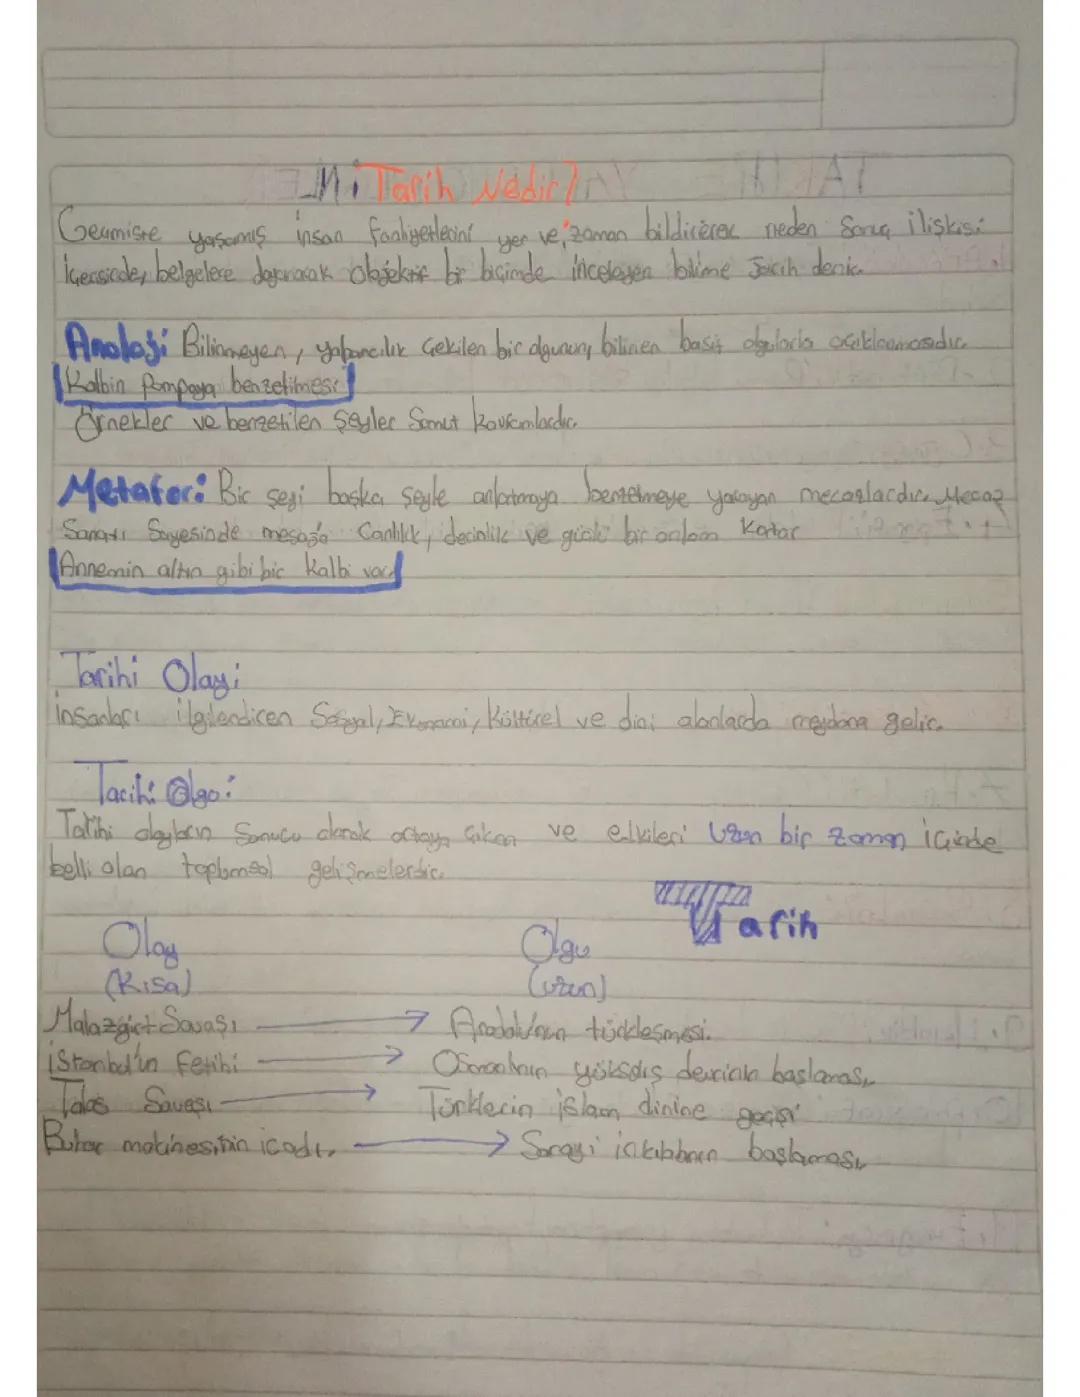 Tarih Nedir?
Geçmişte yaşamış insan faaliyetlerini yer ve zaman bildirerek neden sonuç ilişkisi
İçerisinde, belgelere dayanarak objektif bir biçimde inceleyen bilime Tarih denir.
Analoji: Bilinmeyen, yabancılık çekilen bir olgunun, bilinen basit olgularla açıklanmasıdır.
Kalbin Pompaya benzetilmesi
Örnekler ve benzetilen şeyler Somut kavramlardır.
Metafor: Bir şeyi başka şeyle anlatmaya benzetmeye yarayan mecazlardır. Mecaz
Sanatı Sayesinde mesaja Canlılık, derinlik ve güçlü bir anlam Katar
Annemin altın gibi bir kalbi var
Tarihi Olay:
İnsanları ilgilendiren Sosyal, Ekonomi, Kültürel ve dini alanlarda meydana gelir.
Tarihi Olgu:
Tarihi olayların Sonucu olarak ortaya çıkan ve etkileri Uzun bir zaman içinde
belli olan toplumsal gelişmelerdir.
Tarih
Olay Olgu
(Kısa) (Uzun)
Malazgirt Savaşı → Anadolu'nun türkleşmesi.
İstanbul'un Fetihi → Osmanlının yükseliş devrinin başlaması
Talas Savaşı → Türklerin islam dinine geçişi
Buhar makinesinin icadı. → Sanayi inkılabının başlaması